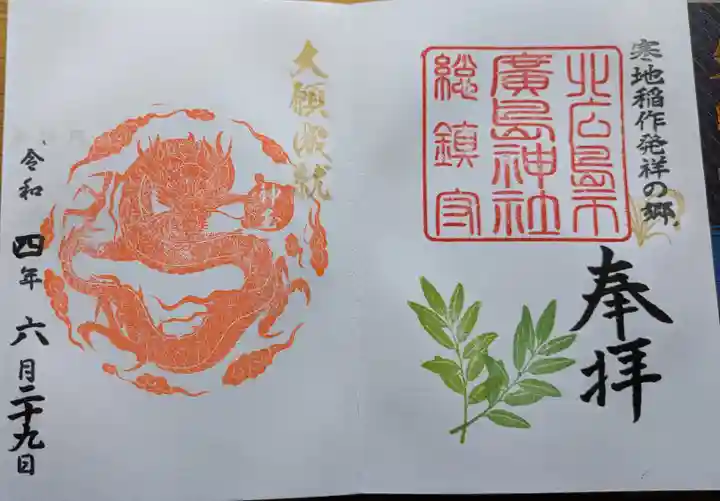 寒地稲作発祥の郷
奉拝
北広島市
廣島神社
総鎮守
大願成就
令和四年六月二十九日